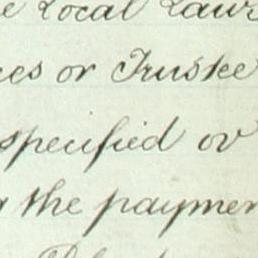 e Local Laws
ces or Trustee
specified or
the paymen